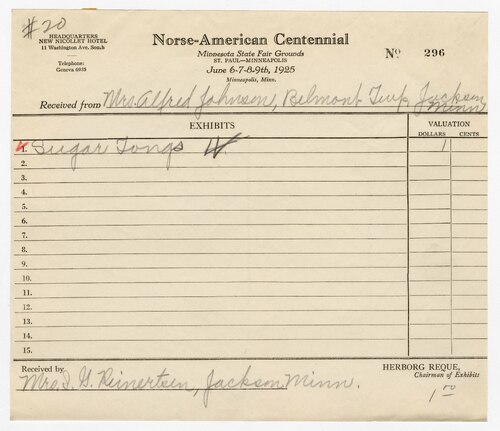 #20
HEADQUARTERS
NEW NICOLLET HOTEL
11 Washington Ave. South
Telephone:
Geneva 6935
Norse-American Centennial
Minnesota State Fair Grounds
ST. PAUL—MINNEAPOLIS
June 6-7-8-9th, 1925
Minneapolis, Minn.
No 296
Received from Mrs. Alfred Johnson, Belmont Twp Jackson
Minn
EXHIBITS
VALUATION
DOLLARS CENTS
1. Sugar Tongs 1
2.
3.
4.
5.
6.
7.
8.
9.
10.
11.
12.
13.
14.
15.
Received by
Mrs. I. G. Reinertsen, Jackson Minn.
HERBORG REQUE,
Chairman of Exhibits
1 00